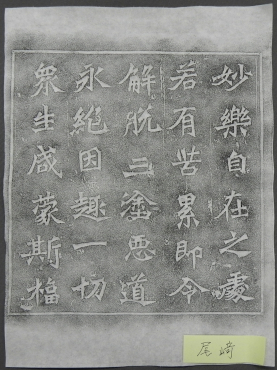 妙樂自在之處
若有苦累即令
解脱三塗惡道
永絶因趣一切
衆生咸蒙斯福
尾崎